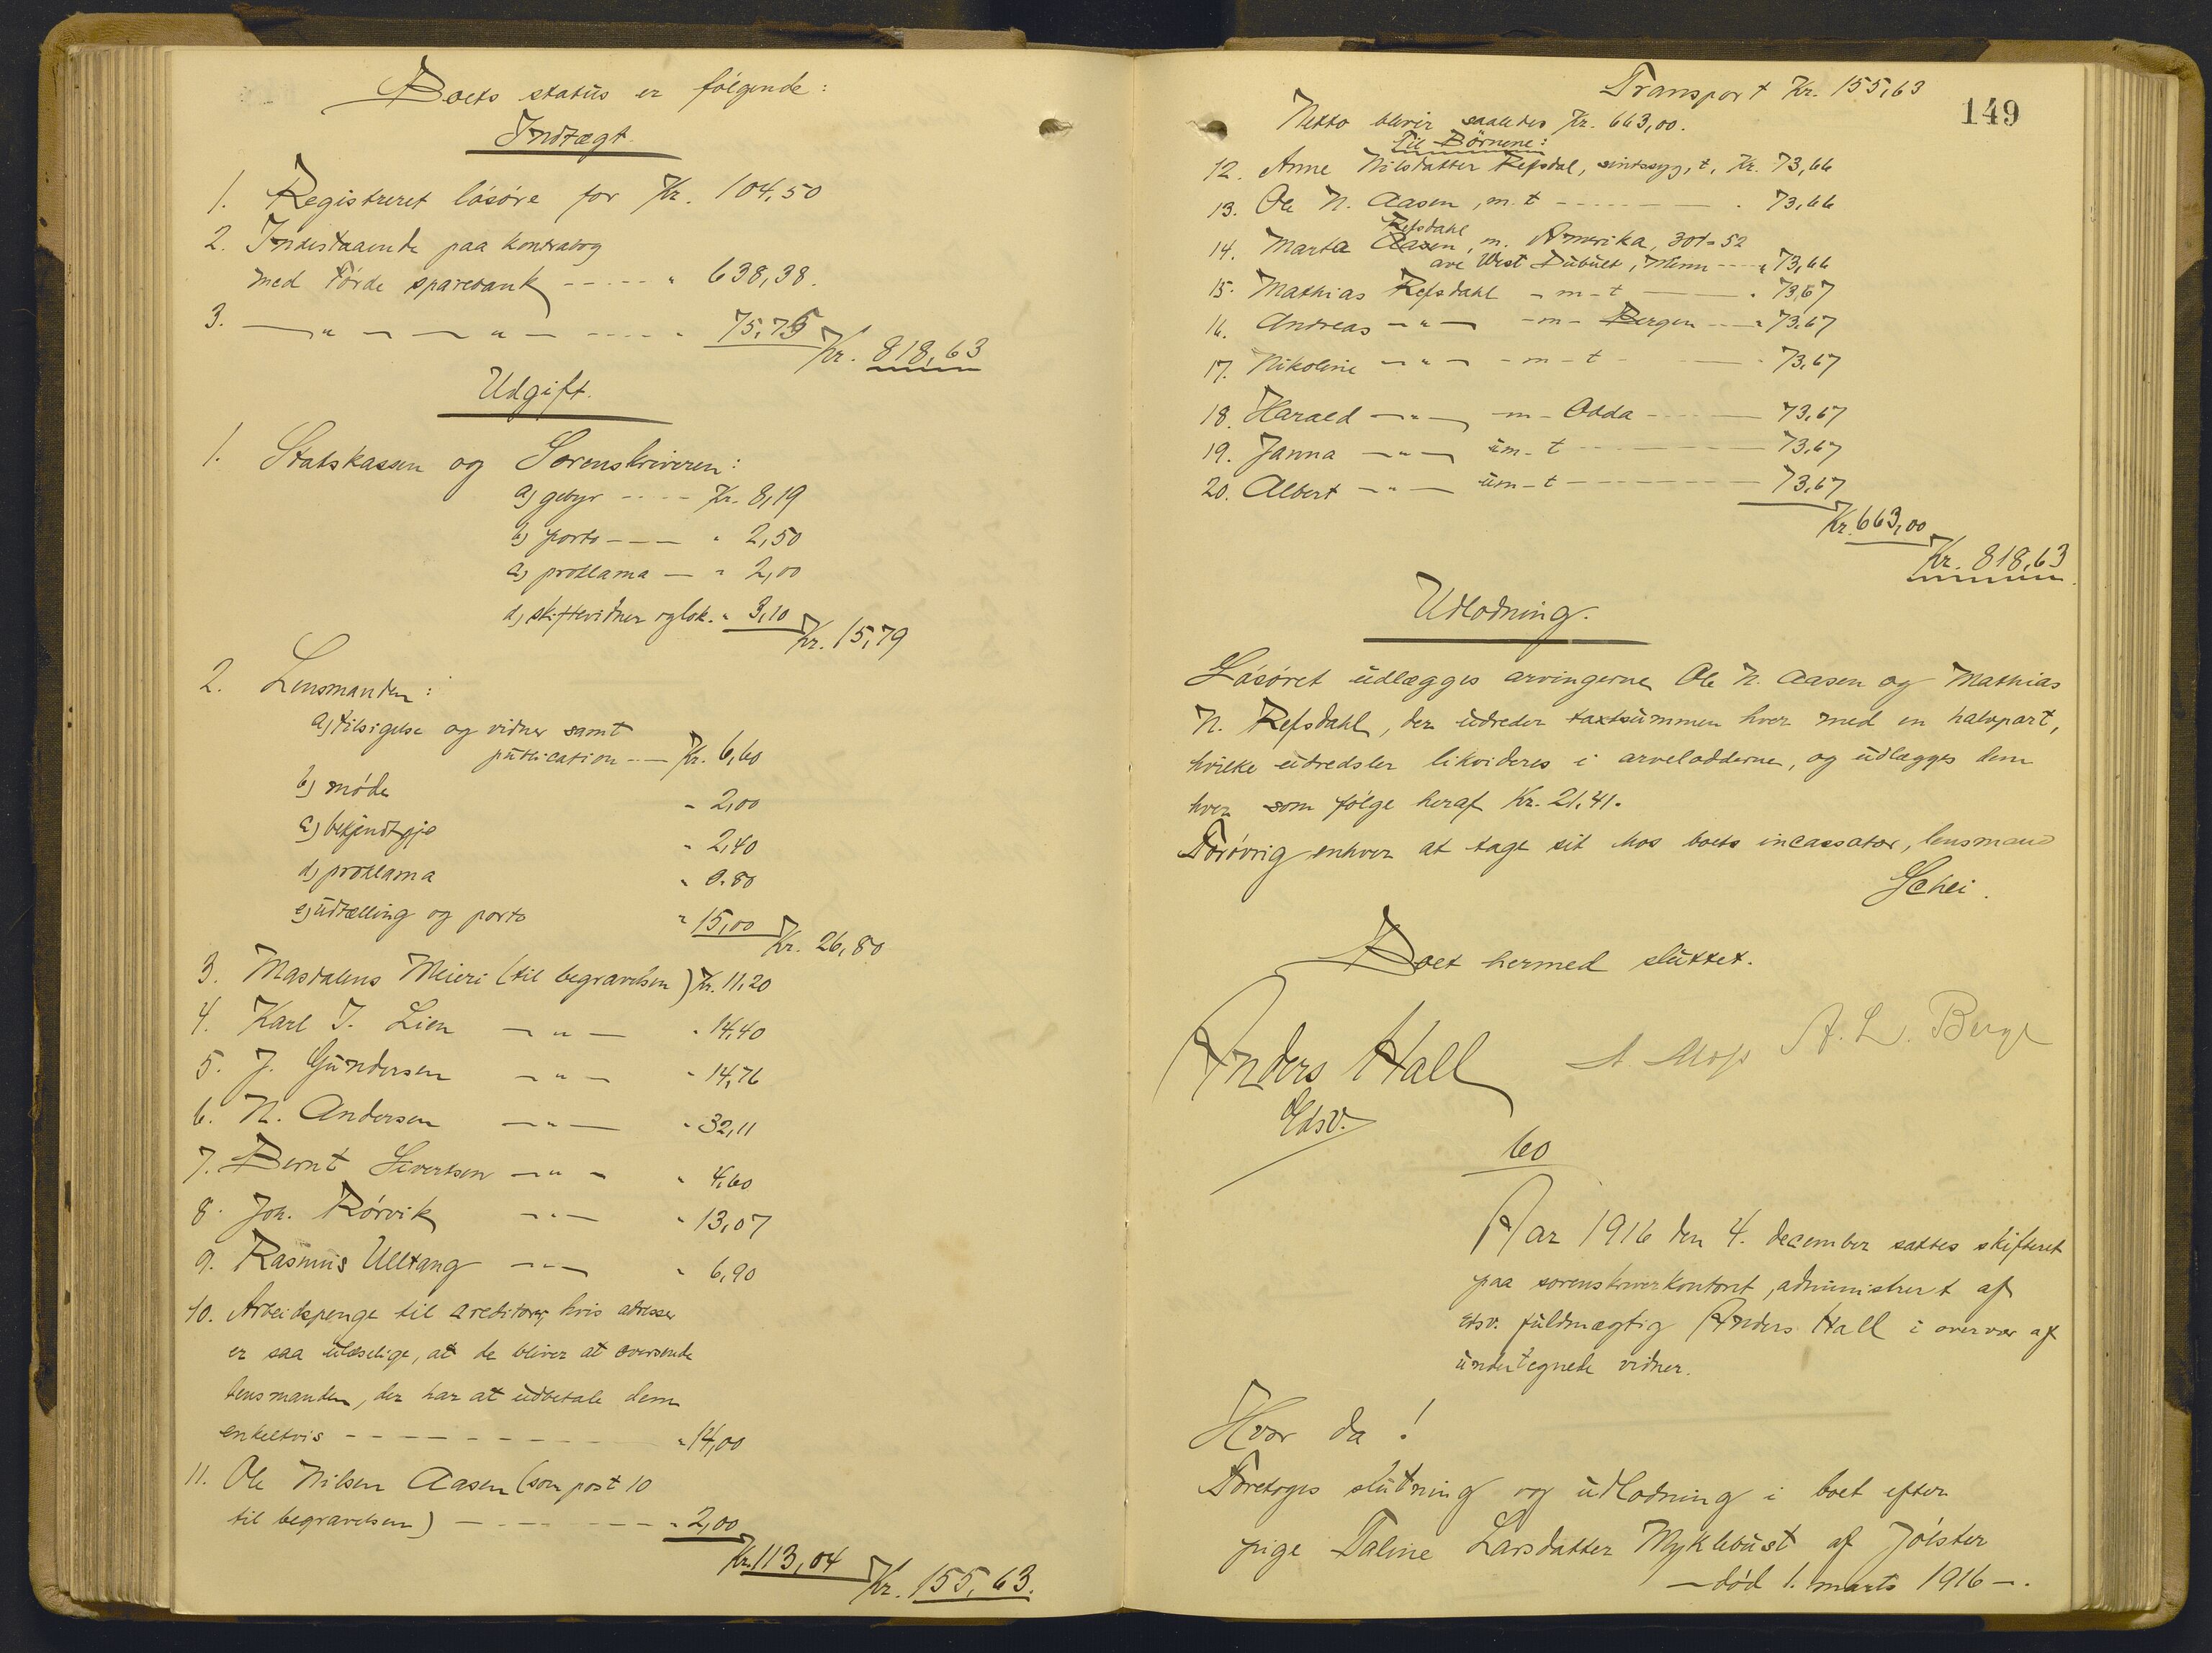 Boets status er følgende:
Indtægt.
1. Registreret løsøre for Kr. 104,50
2. Indestaaende paa kontrabog
med Førde sparebank - - - - - " 638,38.
3. — " — — " — - - - - " 75,75
Kr. 818,63
Udgift.
1. Statskassen og Sorenskriveren:
a) gebyr - - - - Kr. 8,19
b) porto - - - — " 2,50
c) proklama — " 2,00
d) skiftevidner og lok. " 3,10
Kr. 15,79
2. Lensmanden:
a) tilsigelse og vidner samt
publication - - — Kr. 6,60
b) møde " 2,00
c) bekjendtgje " 2,40
d) proklama " 0.80
e) udtælling og porto " 15,00
Kr. 26,80
3. Masdalens Meieri (til begravelsen) Kr. 11,20
4. Karl J. Lien — " — " 14,40
5. J. Gundersen — " — " 14,76
6. N. Andersen — " — " 32,11
7. Bernt Sivertsen — " — " 4,60
8. Joh. Rørvik — " — " 13,07
9. Rasmus Ulltang — " — " 6,90
10. Arbeidspenge til creditorer, hvis adresser
er saa ulæselige, at de bliver at oversende
lensmanden, der har at udbetale dem
enkeltvis - - - - - - - - - " 14,00
11. Ole Nilsen Aasen (som post 10
til begravelsen) — - - - - - — " 2,00
Kr. 113,04
Kr. 155,63.
Transport Kr. 155,63
149
Netto blivir saaledes Kr. 663,00.
Til Børnene:
12. Anne Nilsdatter Refsdal, sindssyg, t, Kr. 73,66
13. Ole N. Aasen, m. t - - - - - — " 73,66
Refsdahl
14. Marta Aasen, m. Amerika, 301-52
ave West Dubult, Minn - - - " 73,66
15. Mathias Refsdahl - m - t ——— " 73,67
16. Andreas — " — - m - Bergen - - - " 73,67
17. Nikoline — " — - m - t - ——— " 73,67
18. Harald — " — - m - Odda - - - — 73,67
19. Janna — " — um - t - - - - — 73,67
20. Albert — " — um - t - - - - — 73,67
Kr. 663,00
Kr. 818,63
Udlodning.
Løsøret udlægges arvingerne Ole N. Aasen og Mathias
N. Refsdahl, der udreder taxtsummen hver med en halvpart,
hvilke udredsler likvideres i arvelodderne, og udlægges dem
hver som følge heraf Kr. 21,41.
Forøvrig enhver at tage sit hos boets incassator, lensmand
Schei.
Boet hermed sluttet.
Anders Hall
Edsv.
A. L. Berge
60
Aar 1916 den 4. december sattes skifteret
paa sorenskriverkontoret, administrert af
edsv. fuldmægtig Anders Hall i overvær af
undertegnede vidner.
Hvor da!
Foretoges slutning og udlodning i boet efter
pige Taline Larsdatter Myklebust af Jølster
— død 1. marts 1916 —.